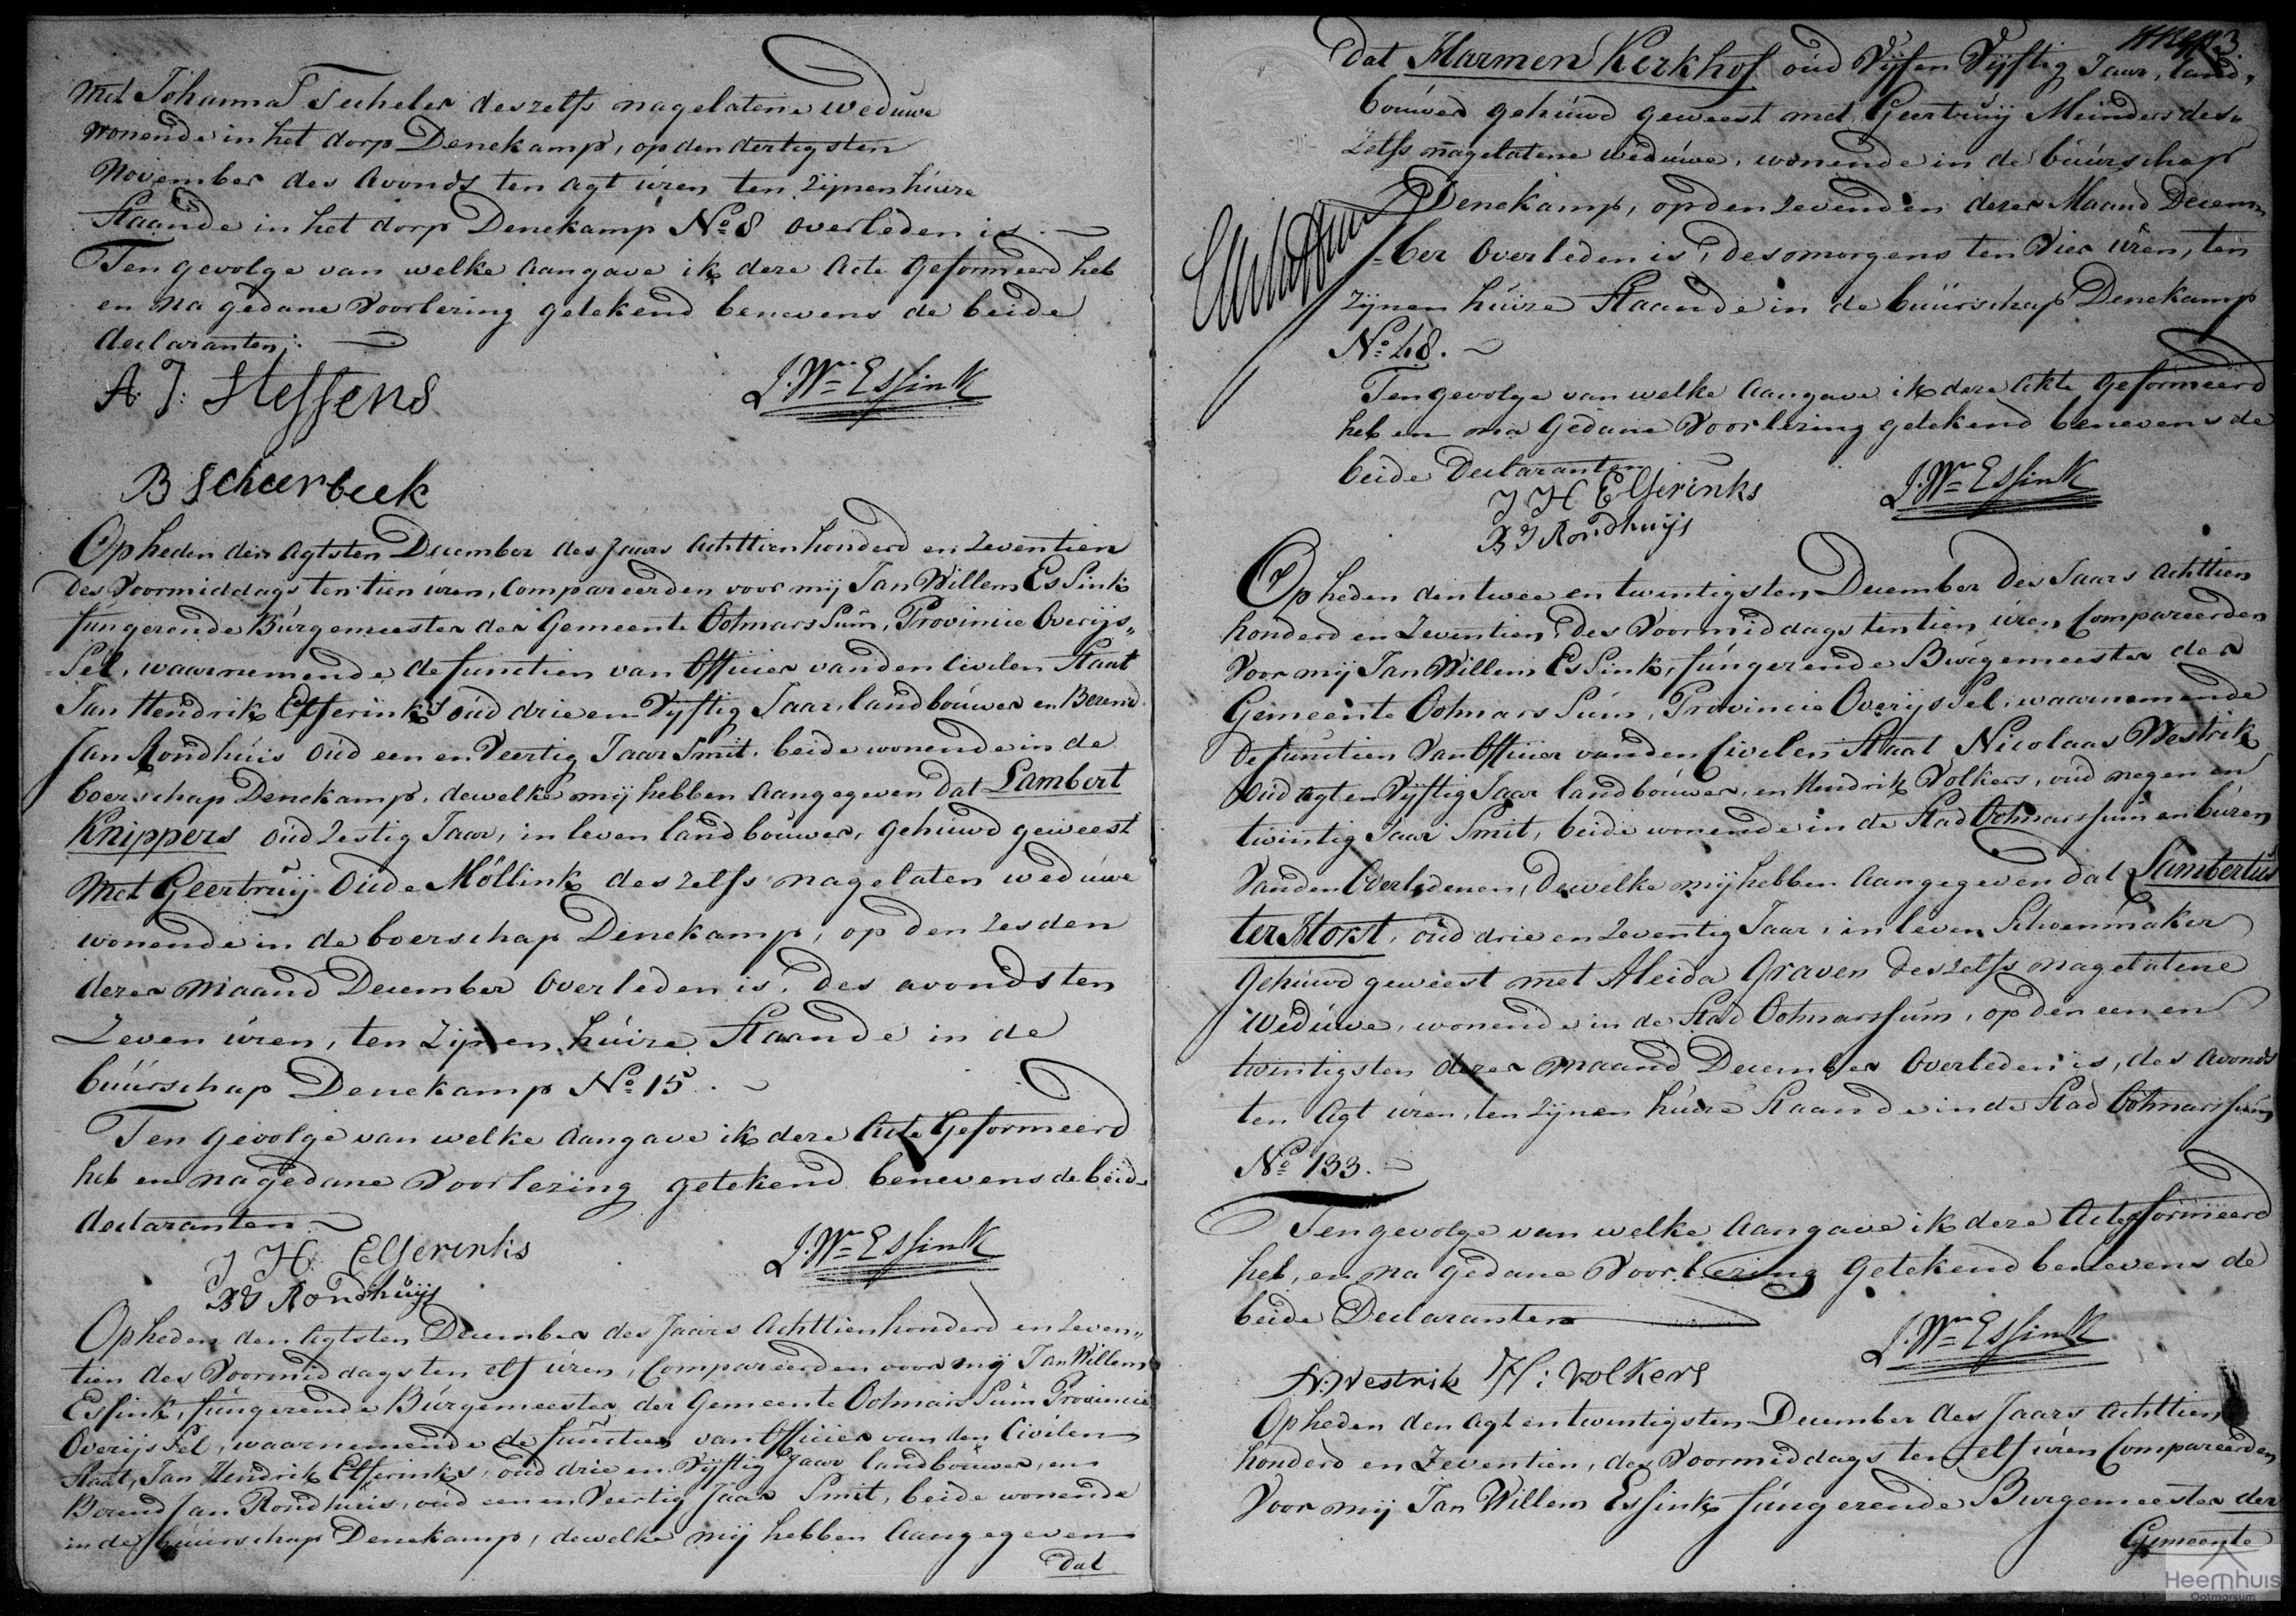 Met Johanna Techeler deszelfs nagelatene weduwe
wonende in het dorp Denekamp, op den dertigsten
November des avonds ten agt úren ten zijnen húize
Staande in het dorp Denekamp No 8 overleden is.
Ten gevolge van welke aangave ik deze Acte geformeerd heb
en na gedane voorlezing getekend benevens de beide
declaranten.
A. J. Steffens J. Wm Essink
B Scheerbeek
Op heden den agtsten December des Jaars Achttienhonderd en zeventien
des voormiddags ten tien úren, Compareerden voor mij Jan Willem Essink
fúngerende Búrgemeester der Gemeente Ootmarssúm, Provincie Overijs„
-sel, waarnemende de functien van Officier van den Civilen Staat
Jan Hendrik Elferinks oúd drie en Vyftig Jaar landboúwer en Berend
Jan Rondhúis oúd een en Veertig Jaar Smit, beide wonende in de
boerschap Denekamp, dewelke mij hebben aangegeven dat Lambert
Knippers oúd zestig Jaar, in leven landboúwer, gehuwd geweest
Met Geertruij Oude Möllink deszelfs nagelaten wedúwe
wonende in de boerschap Denekamp, op den zesden
dezer maand December overleden is, des avonds ten
Zeven úren, ten zijnen húize Staande in de
búúrschap Denekamp No 15.
Ten gevolge van welke aangave ik deze Acte Geformeerd
heb en na gedane voorlezing getekend benevens de beide
declaranten
J H Elferinks J. Wm Essink
BJ Rondhuijs
Op heden den agtsten December des Jaars Achttienhonderd en zeven„
tien des Voormiddags ten elf úren, Compareerden voor mij Jan Willem
Essink, fúngerende Búrgemeester der Gemeente Ootmarssúm Provincie
Overijssel, waarnemende de functien van Officier van den Civilen
Staat, Jan Hendrik Elferinks, oúd drie en Vyftig Jaar landboúwer, en
Berend Jan Rondhuis, oúd een en Veertig Jaar Smit, beide wonende
in de búúrschap Denekamp, dewelke mij hebben aangegeven
dat
dat Harmen Kerkhof oúd Vyf en Vyftig Jaar, land„
boúwer gehúwd geweest met Geertruij Meinders des„
zelfs nagelatene wedúwe, wonende in de búúrschap
Denekamp, op den zevenden dezer Maand Decem„
-ber overleden is, des omorgens ten Vier úren, ten
zijnen húize Staande in de búúrschap Denekamp
No 48.
Ten gevolge van welke aangave ik deze akte geformeerd
heb en na gedane voorlezing getekend benevens de
beide Declaranten
J H Elferinks J. Wm Essink
BJ Rondhuijs
Op heden den twee en twintigsten December des Jaars Achttien
honderd en Zeventien, des Voormiddags ten tien úren Compareerden
Voor mij Jan Willem Essink, fúngerende Búrgemeester der
Gemeente Ootmarssúm, Provincie Overijssel, waarnemende
de functien van Officier van den Civilen Staat Nicolaas Westrik
Oúd agt en Vyftig Jaar landboúwer, en Hendrik Volkers, oúd negen en
twintig Jaar Smit, beide wonende in de Stad Ootmarssúm en búren
Van den Overledenen, Dewelke mij hebben aangegeven dat Lambertus
ter Horst, oúd drie en zeventig Jaar, in leven Schoenmaker
Gehúwd geweest met Aleida Graven deszelfs nagelatene
Wedúwe, wonende in de Stad Ootmarssúm, op den een en
twintigsten dezer maand December Overleden is, des avonds
ten Agt úren, ten zijnen húize Staande in de Stad Ootmarssúm
No 133.
Ten gevolge van welke aangave ik deze Acte geformeerd
heb, en na gedane Voorlezing Getekend benevens de
beide Declaranten
J. Wm Essink
N. Westrik H: Volkers
Op heden den agt en twintigsten December des Jaars Achttien
honderd en Zeventien, des voormiddags ten elf úren Compareerden
Voor mij Jan Willem Essink fúngerende Burgemeester der
Gemeente
Heemhuis
Ootmarsum